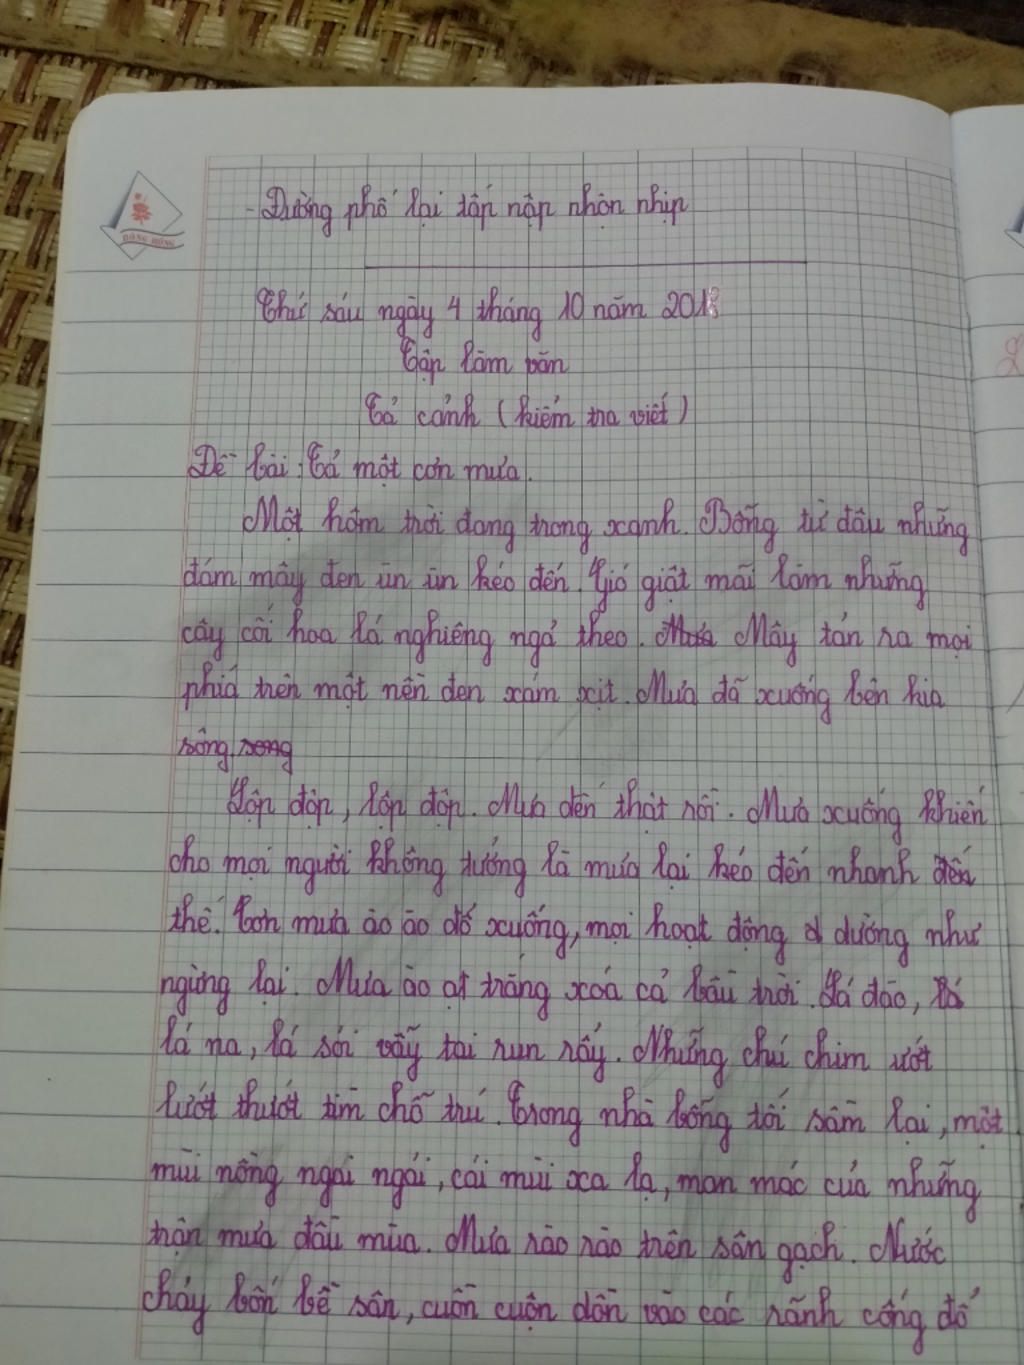 HỒNG HÒNG
- Đường phố lại tấp nập nhộn nhịp
Thứ sáu ngày 4 tháng 10 năm 2018
Tập làm văn
Tả cảnh (kiểm tra viết)
Đề bài: Tả một cơn mưa.
Một hôm trời đang trong xanh. Bỗng từ đâu những
đám mây đen ùn ùn kéo đến. Gió giật mãi làm những
cây cối hoa lá nghiêng ngả theo. Mây tản ra mọi
phía trên một nền đen xám xịt. Mưa đã xuống bên kia
sông
Lộp độp, lộp độp. Mưa đến thật rồi. Mưa xuống khiến
cho mọi người không tưởng là mưa lại kéo đến nhanh đến
thế. Cơn mưa ào ào đổ xuống, mọi hoạt động dường như
ngừng lại. Mưa ào ạt trắng xoá cả bầu trời. Lá đào,
lá na, lá sói vẫy tai run rẩy. Những chú chim ướt
lướt thướt tìm chỗ trú. Trong nhà bỗng tối sầm lại, một
mùi nồng ngai ngái, cái mùi xa lạ, man mác của những
trận mưa đầu mùa. Mưa rào rào trên sân gạch. Nước
chảy bốn bề sân, cuồn cuộn dồn vào các rãnh cống đổ